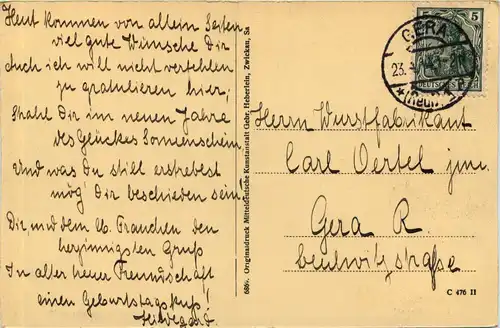 Heut kommen von allen Seiten
viel gute Wünsche Dir
Auch ich will nicht verfehlen
zu gratulieren hier,
Strahl Dir im neuen Jahre
des Glückes Sonnenschein
Und was Du still erstrebest
mög Dir beschieden sein!
Dir, und dem lb. Frauchen den
herzinnigsten Gruß
In alter treuer Freundschaft
einen Geburtstagskuß!
Hildegard.
686b. Originaldruck Mitteldeutsche Kunstanstalt Gebr. Heberlein, Zwickau, Sa
5 5
DEUTSCHES REICH
GERA
23.
* (Reuß)
Herrn Wurstfabrikant
Carl Oertel jun.
Gera R.
Beulwitzstraße
C 476 II